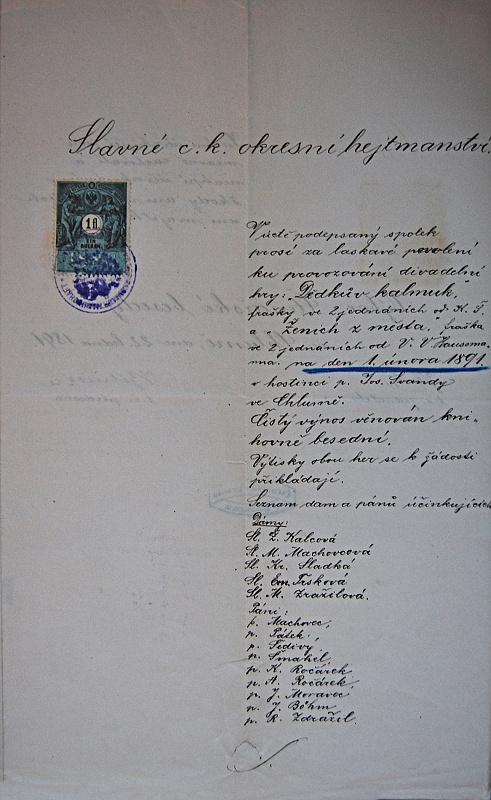 Slavné c. k. okresní hejtmanství.
1 fl
V úctě podepsaný spolek
prosí za laskavé povolení
ku provozování divadelní
hry: „Dědkův kalmuk",
frašky ve 2 jednáních od K. F.
a „Ženich z města", fraška
ve 2 jednáních od V. V. Hausma-
nna. na den 1. února 1891
v hostinci p. Jos. Švandy
ve Chlumě.
Čistý výnos věnován kni-
hovně besední.
Výtisky obou her se k žádosti
přikládají.
Seznam dam a pánů účinkujících
Dámy:
Sl. Ž. Kalcová
Sl. M. Machovcová
Sl. Kr. Sladká
Sl. Em. Trsková
Sl. M. Zražilová.
Páni:
p. Machovec,
p. Pátek,
p. Šedivý
p. Šmakel
p. K. Ročárek
p. A. Ročárek
p. J. Moravec
p. J. Böhm
p. R. Zdražil.